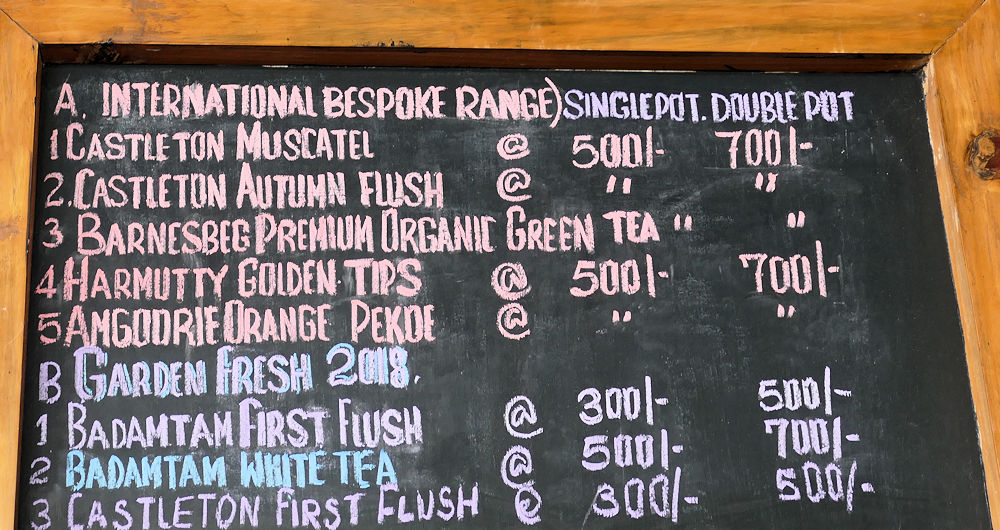 A. INTERNATIONAL BESPOKE RANGE) SINGLEPOT. DOUBLE POT
1 CASTLETON MUSCATEL @ 500/- 700/-
2. CASTLETON AUTUMN FLUSH @ " "
3 BARNESBEG PREMIUM ORGANIC GREEN TEA " "
4 HARMUTTY GOLDEN TIPS @ 500/- 700/-
5 AMGOORIE ORANGE PEKOE @ " "
B GARDEN FRESH 2018.
1 BADAMTAM FIRST FLUSH @ 300/- 500/-
2 BADAMTAM WHITE TEA @ 500/- 700/-
3 CASTLETON FIRST FLUSH @ 300/- 500/-